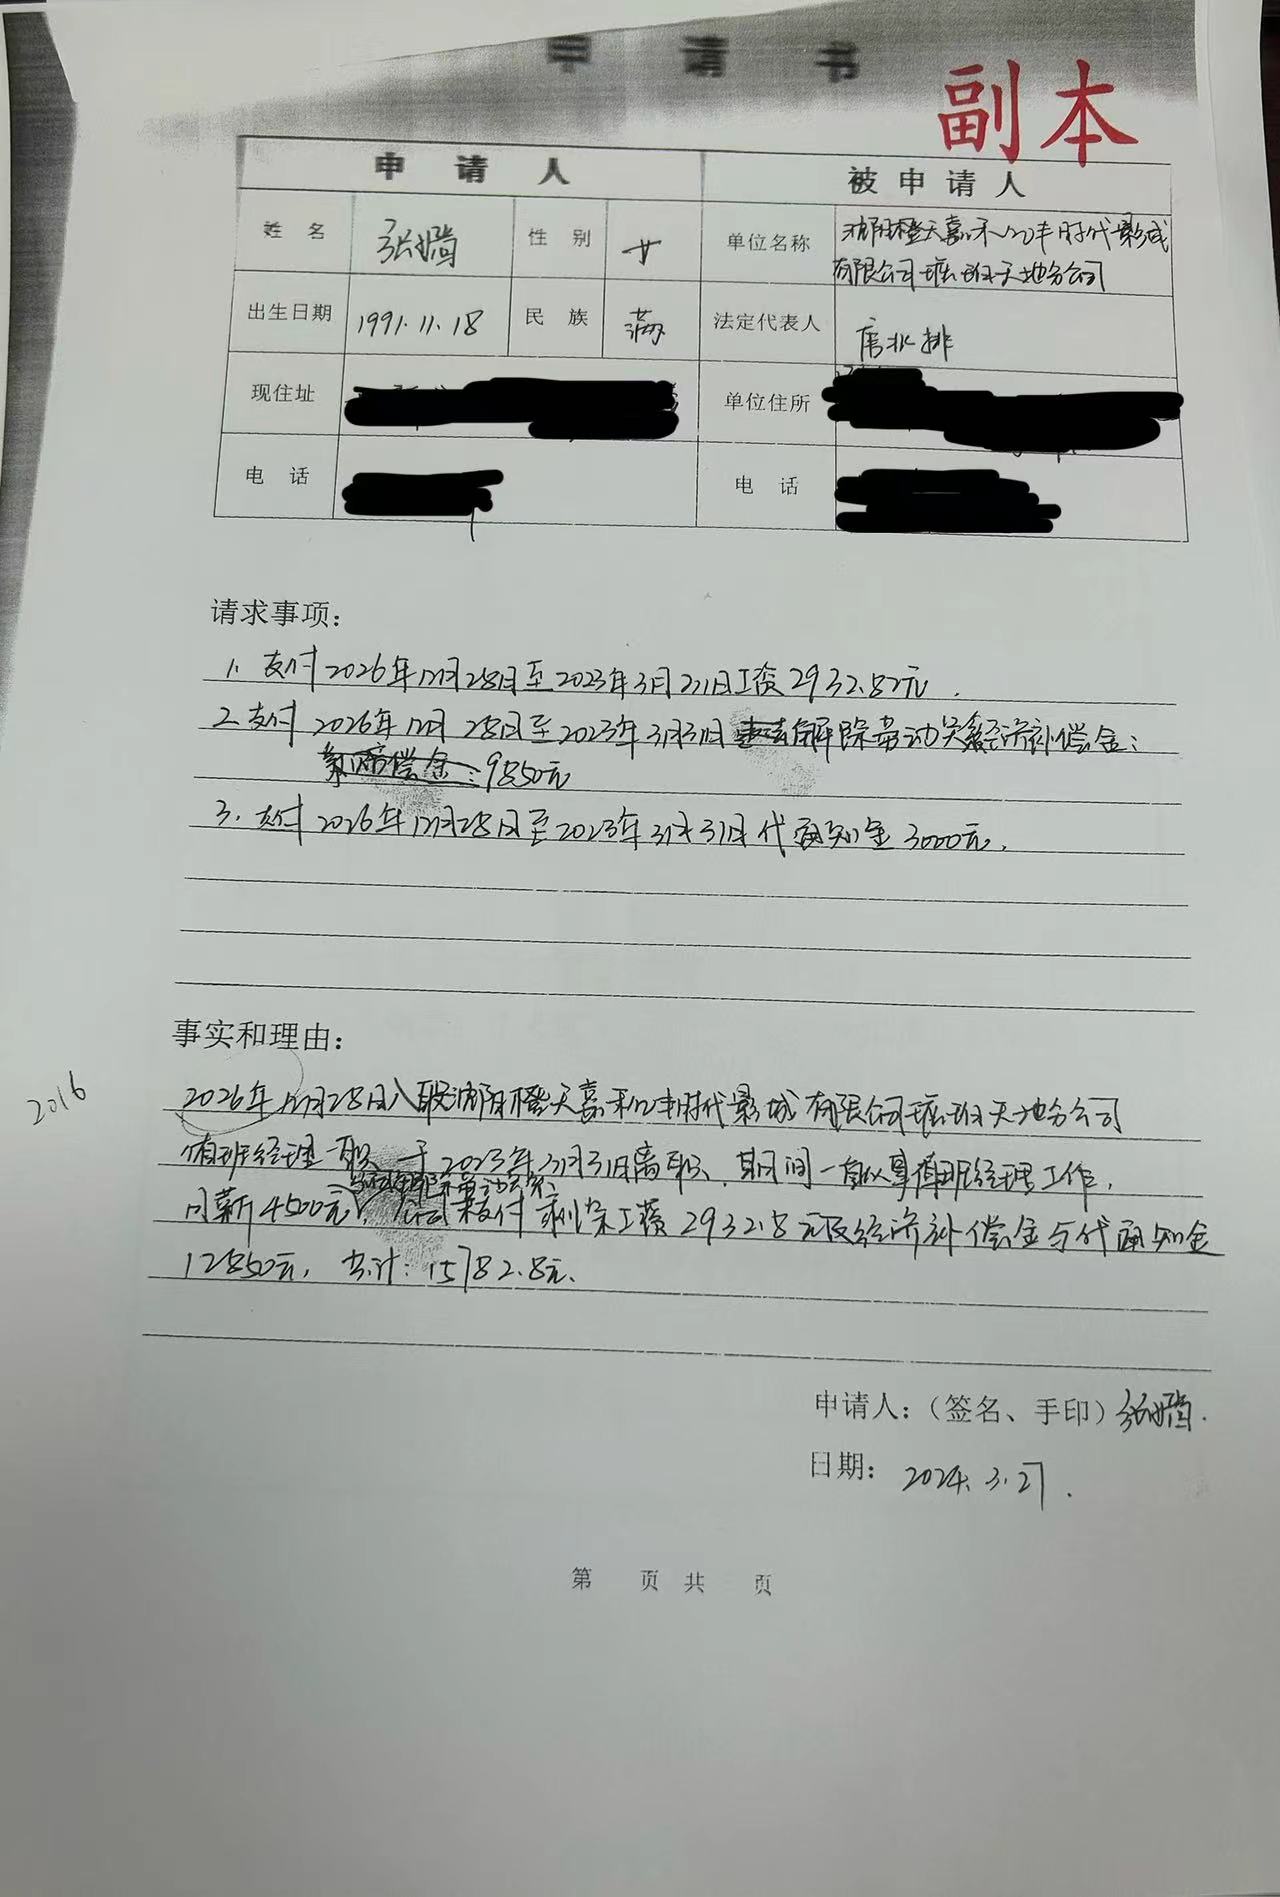 申请书
副本
申请人 被申请人
姓名 张嫦 性别 女 单位名称 沈阳橙天嘉禾 时代影城
有限公司 天地分公司
出生日期 1991.11.18 民族 满 法定代表人
现住址 单位住所
电话 电话
请求事项：
1. 支付2026年12月28日至2023年3月31日工资2932.82元.
2.支付2026年12月28日至2023年3月31日 解除劳动关系经济补偿金：
赔偿金：9850元
3. 支付2026年12月28日至2023年3月31日代通知金3000元.
事实和理由：
2016
2026年12月28日入职沈阳橙天嘉禾 时代影城有限公司 天地分公司
值班经理一职 于2023年3月31日离职, 期间一直从事值班经理工作,
解除劳动关系
月薪4500元, 公司未支付剩余工资2932.8元及经济补偿金与代通知金
12850元, 共计：15782.8元.
申请人：（签名、手印）张嫦.
日期： 2024.3.27.
第 页 共 页